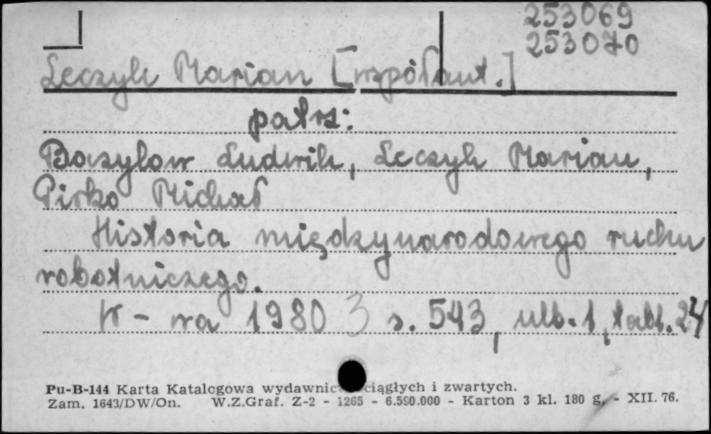 253069
253070
Leczyk Marian [współaut.]
patrz:
Bazylow Ludwik, Leczyk Marian,
Pirko Michał
Historia międzynarodowego ruchu
robotniczego.
W-wa 1980 3 s. 543, nlb. 1, tabl. 24
Pu-B-144 Karta Katalogowa wydawnic ciągłych i zwartych.
Zam. 1643/DW/On. W.Z.Graf. Z-2 - 1265 - 6.590.000 - Karton 3 kl. 180 g. - XII. 76.